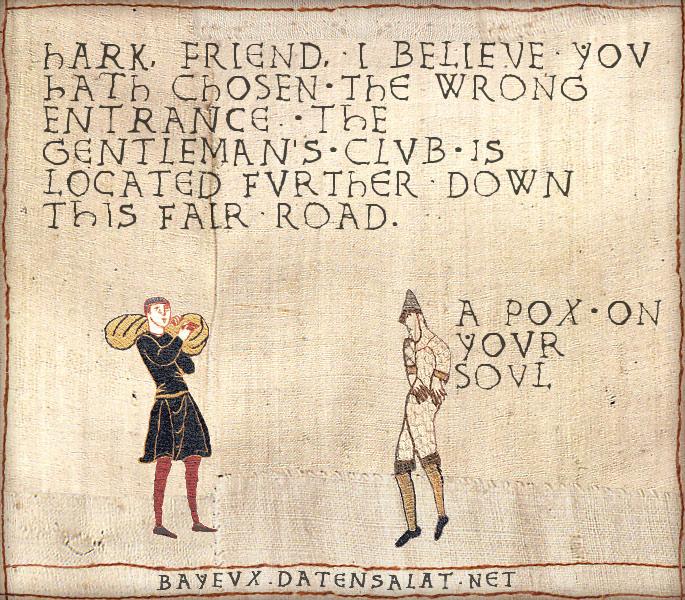 hARK, FRIEND, · I BELIEVE · YOV
hATh ChOSEN · ThE WRONG
ENTRANCE. · ThE
GENTLEMAN'S · CLVB · IS
LOCATED FVRThER · DOWN
ThIS FAIR · ROAD.
A POX · ON
YOVR
SOVL
BAYEVX.DATENSALAT.NET